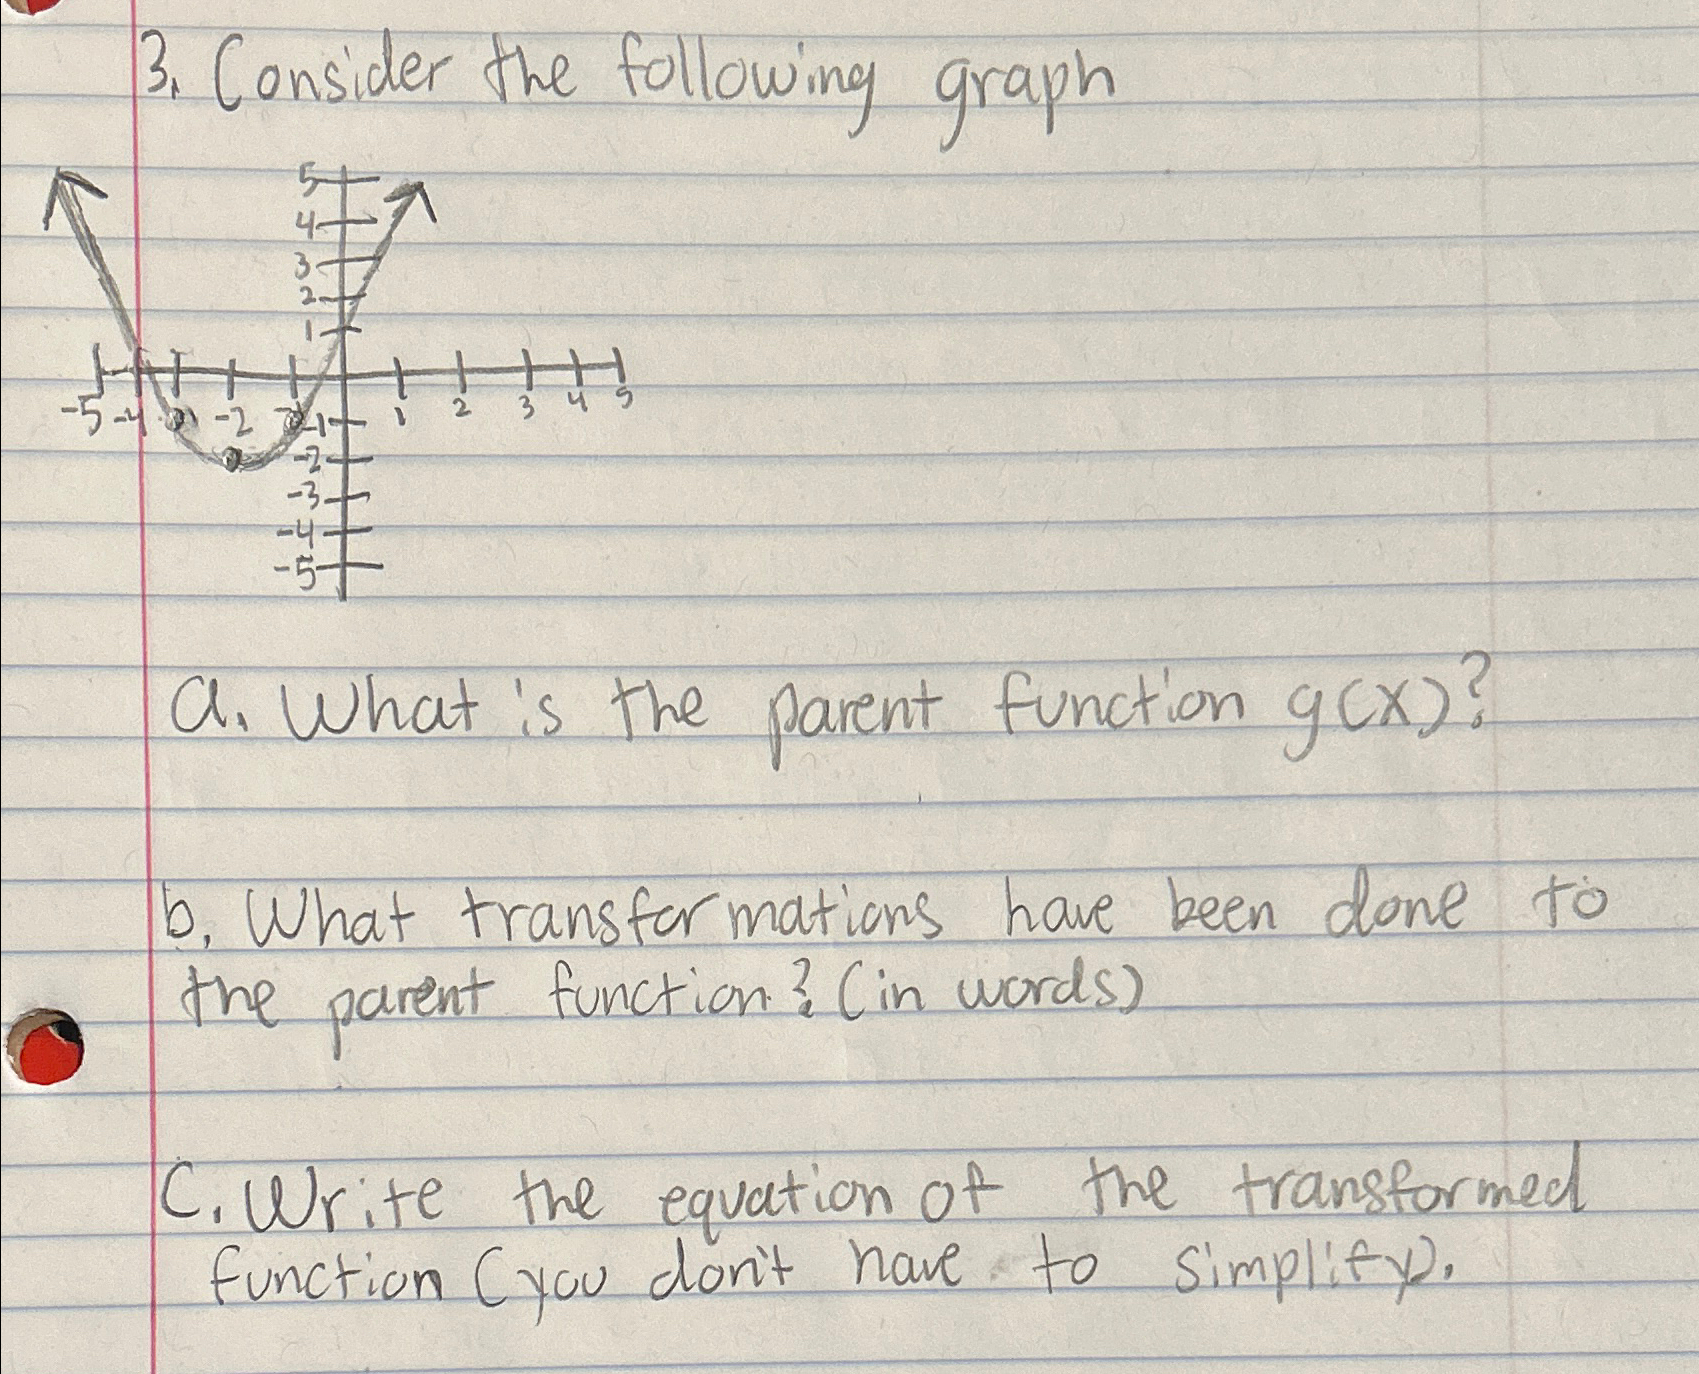 3. Consider the following graph
5
4
3
2
1
-5 -4 -2 -1 1 2 3 4 5
-2
-3
-4
-5
a. What is the parent function g(x)?
b. What transformations have been done to
the parent function? (in words)
C. Write the equation of the transformed
function (you don't have to simplify).